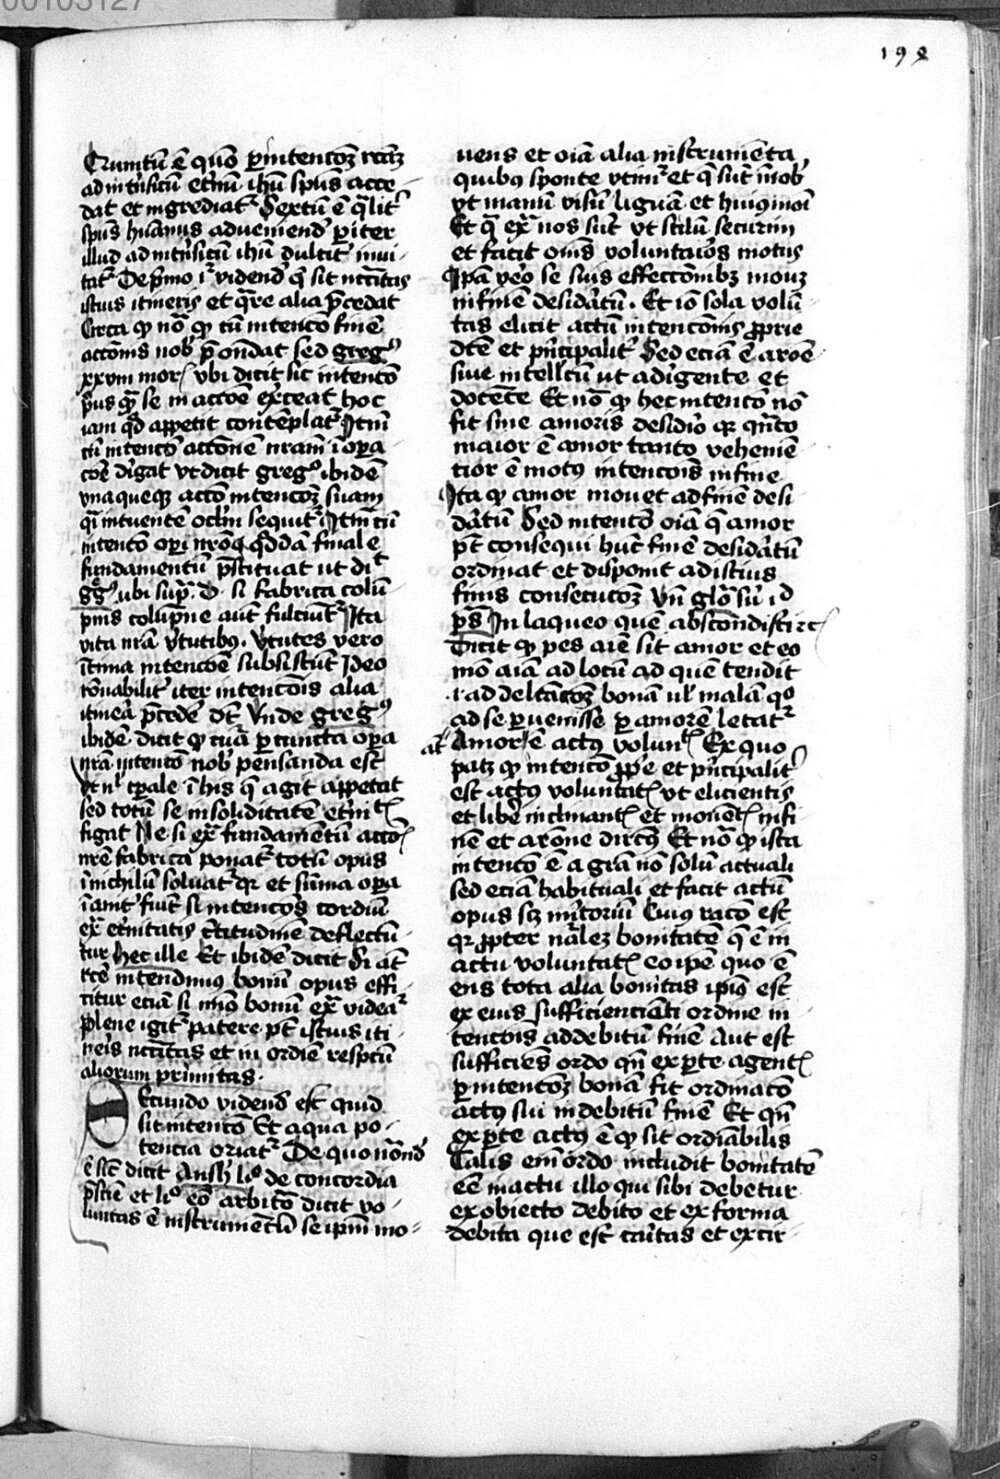 00103127
198
Quintū ē quō ꝑ intencōeꝫ rectāꝫ
ad intrīsicū et̄nū ihū spūs acce-
dat et ingrediatᷣ Sextū ē q̄litᷣ
spūs hūanus adueniend ꝑ iter
illud ad intrīsicū ihū dulcitᷣ inui-
tatᷣ De pͥmo iᷣ vidend qͩ sit nccītas
istius itineris et qᷓre alia p̄cedat
Circa qͩ nō qͩ cū intencō finē
accōnis nob p̄ondat sed gregͦ
xxviii mor vbi dicit sic intencō
pͥus qᷓ se in accōe exerceat hoc
iam qͩ appetit contēplatᷣ Itm̄
cū intencō accōnē nrām ī oꝑa
cōe dīgat vt dicit gregͦ ibidē
vnaqueqꝫ accō intencōeꝫ suam
qͣ intuentē oclm̄ sequitᷣ Itm̄ cū
intencō oꝑi nrōqꝫ qͩdā finale
fundamentū p̄stituat ut dīt
ggͦ ubi supᷓ. d. si fabrica colū
pnis colūpne aut fulciūtᷣ Ita
vita nrā v̄tutibꝯ. v̄tutes vero
ītima intencōe subsistūt Ideo
rōnabilitᷣ iter intencōis alia
itinea p̄cedē dt̄ Vnde gregͦ
ibidē dicit qͩ cūa ꝑ cuncta oꝑa
nrā intencō nob pensanda est
vt nͥl tp̄ale ī his q̄ agit appetat
sed totū se in soliditatē et̄nit
figat Ne si ex fundamentū accōis
nrē fabrica ponatᷣ totū opus
ī nichilū soluatᷣ qꝛ et sūma oꝑa
īanit fiūt si intencōs cordiū
ex et̄nitatis c̄titudinē deflectū
tur hec ille Et ibidē dicit Si at̄
rcē intendimꝯ bonū opus effi
citur eciā si minꝯ bonū ex videaᷣ
plene igitᷣ patere pt̄ istius iti
neis nccītas et in ordiē respcū
aliorum primitas.
Secundo vidend est quid
sit intencō Et a qua po-
tencia oriatᷣ De quo nōnd
ē sic̄ dicit Ansh liͦ de concordia
p̄scie et liͦ eō arbitō dicit vo-
luntas ē instrumētū se ipm̄ mo-
uens et oīa alia instrumēta
quibꝯ sponte vtimᷣ et q̄ sūt in nob
vt manū visū liguā et huiꝯmōi
Et q̄ exᷓ nos sūt vt stilū securim
et facit oms voluntaīos motus
Ipā vēo se suis effectōnibꝫ mouꝫ
in finē desidātū. Et iō sola volū
tas elicit actū intencōnis ꝓprie
dcē et pͥncipalitᷣ Sed eciā ē a rōe
siue intellcū ut a dīgente et
docēte Et nō qͩ hec intencō nō
fit sine amoris desidīo qꝛ qn̄to
maior ē amor tanto vehemē
cior ē motꝯ intencōis in fine
Ita qͩ amor mouet ad finē desi
dātū Sed intencō oīa q̄ amor
pt̄ consequi hūc finē desidātū
ordinat et disponit ad istius
finis consecucōeꝫ vn̄ glō sū id
pͣs In laqueo quē abscōndistī rc̄
Dicit qͩ pes aīe sit amor et eo
mō aīā ad locū ad quē tendit
.i. ad delcācōeꝫ bonā ul malā qͦ
ad se ꝑuenisse ꝑ amorē letatᷣ
at Amor ē actꝯ volunt Ex quo
patꝫ qͩ intencō ꝓpͥe et pͥncipalitᷣ
est actꝯ voluntat vt elicientis
et libē inclinant et mouent in fi
nē et a rōne dircꝯ Et nō qͩ ista
intencō ē a grā nō solū actuali
sed eciā habituali et facit actū
opus scꝫ mͥtoriū Cuiꝯ racō est
qꝛ ꝓpter nᷓaleꝫ bonitatē q̄ ē in
actu voluntat eo ipē quo ē
ens tota alia bonitas ipiꝯ est
ex eius sufficienciāti ordine in
tencōis ad debitū finē Aut est
sufficiēs ordo qn̄ ex ꝑte agent
ꝑ intencōeꝫ bonā fit ordinacō
actꝯ sui in debitū finē Et qn̄
ex ꝑte actꝯ ē qͩ sit ordiābilis
Talis em̄ ordo includit bonitatē
eē in actu illo qui sibi debetur
ex obiecto debito et ex forma
debita que est caītas et ex cir-